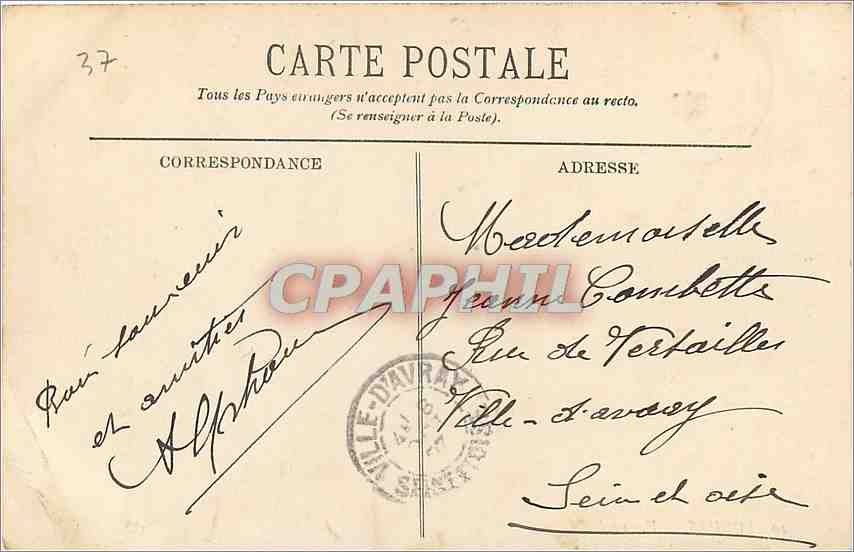 37
CARTE POSTALE
Tous les Pays étrangers n'acceptent pas la Correspondance au recto.
(Se renseigner à la Poste).
CORRESPONDANCE
Bon souvenir
et amitiés
Alphonse
ADRESSE
Mademoiselle
Jeanne Combette
Rue de Versailles
Ville-d'avray
Seine et oise
CPAPHIL
VILLE-D'AVRAY